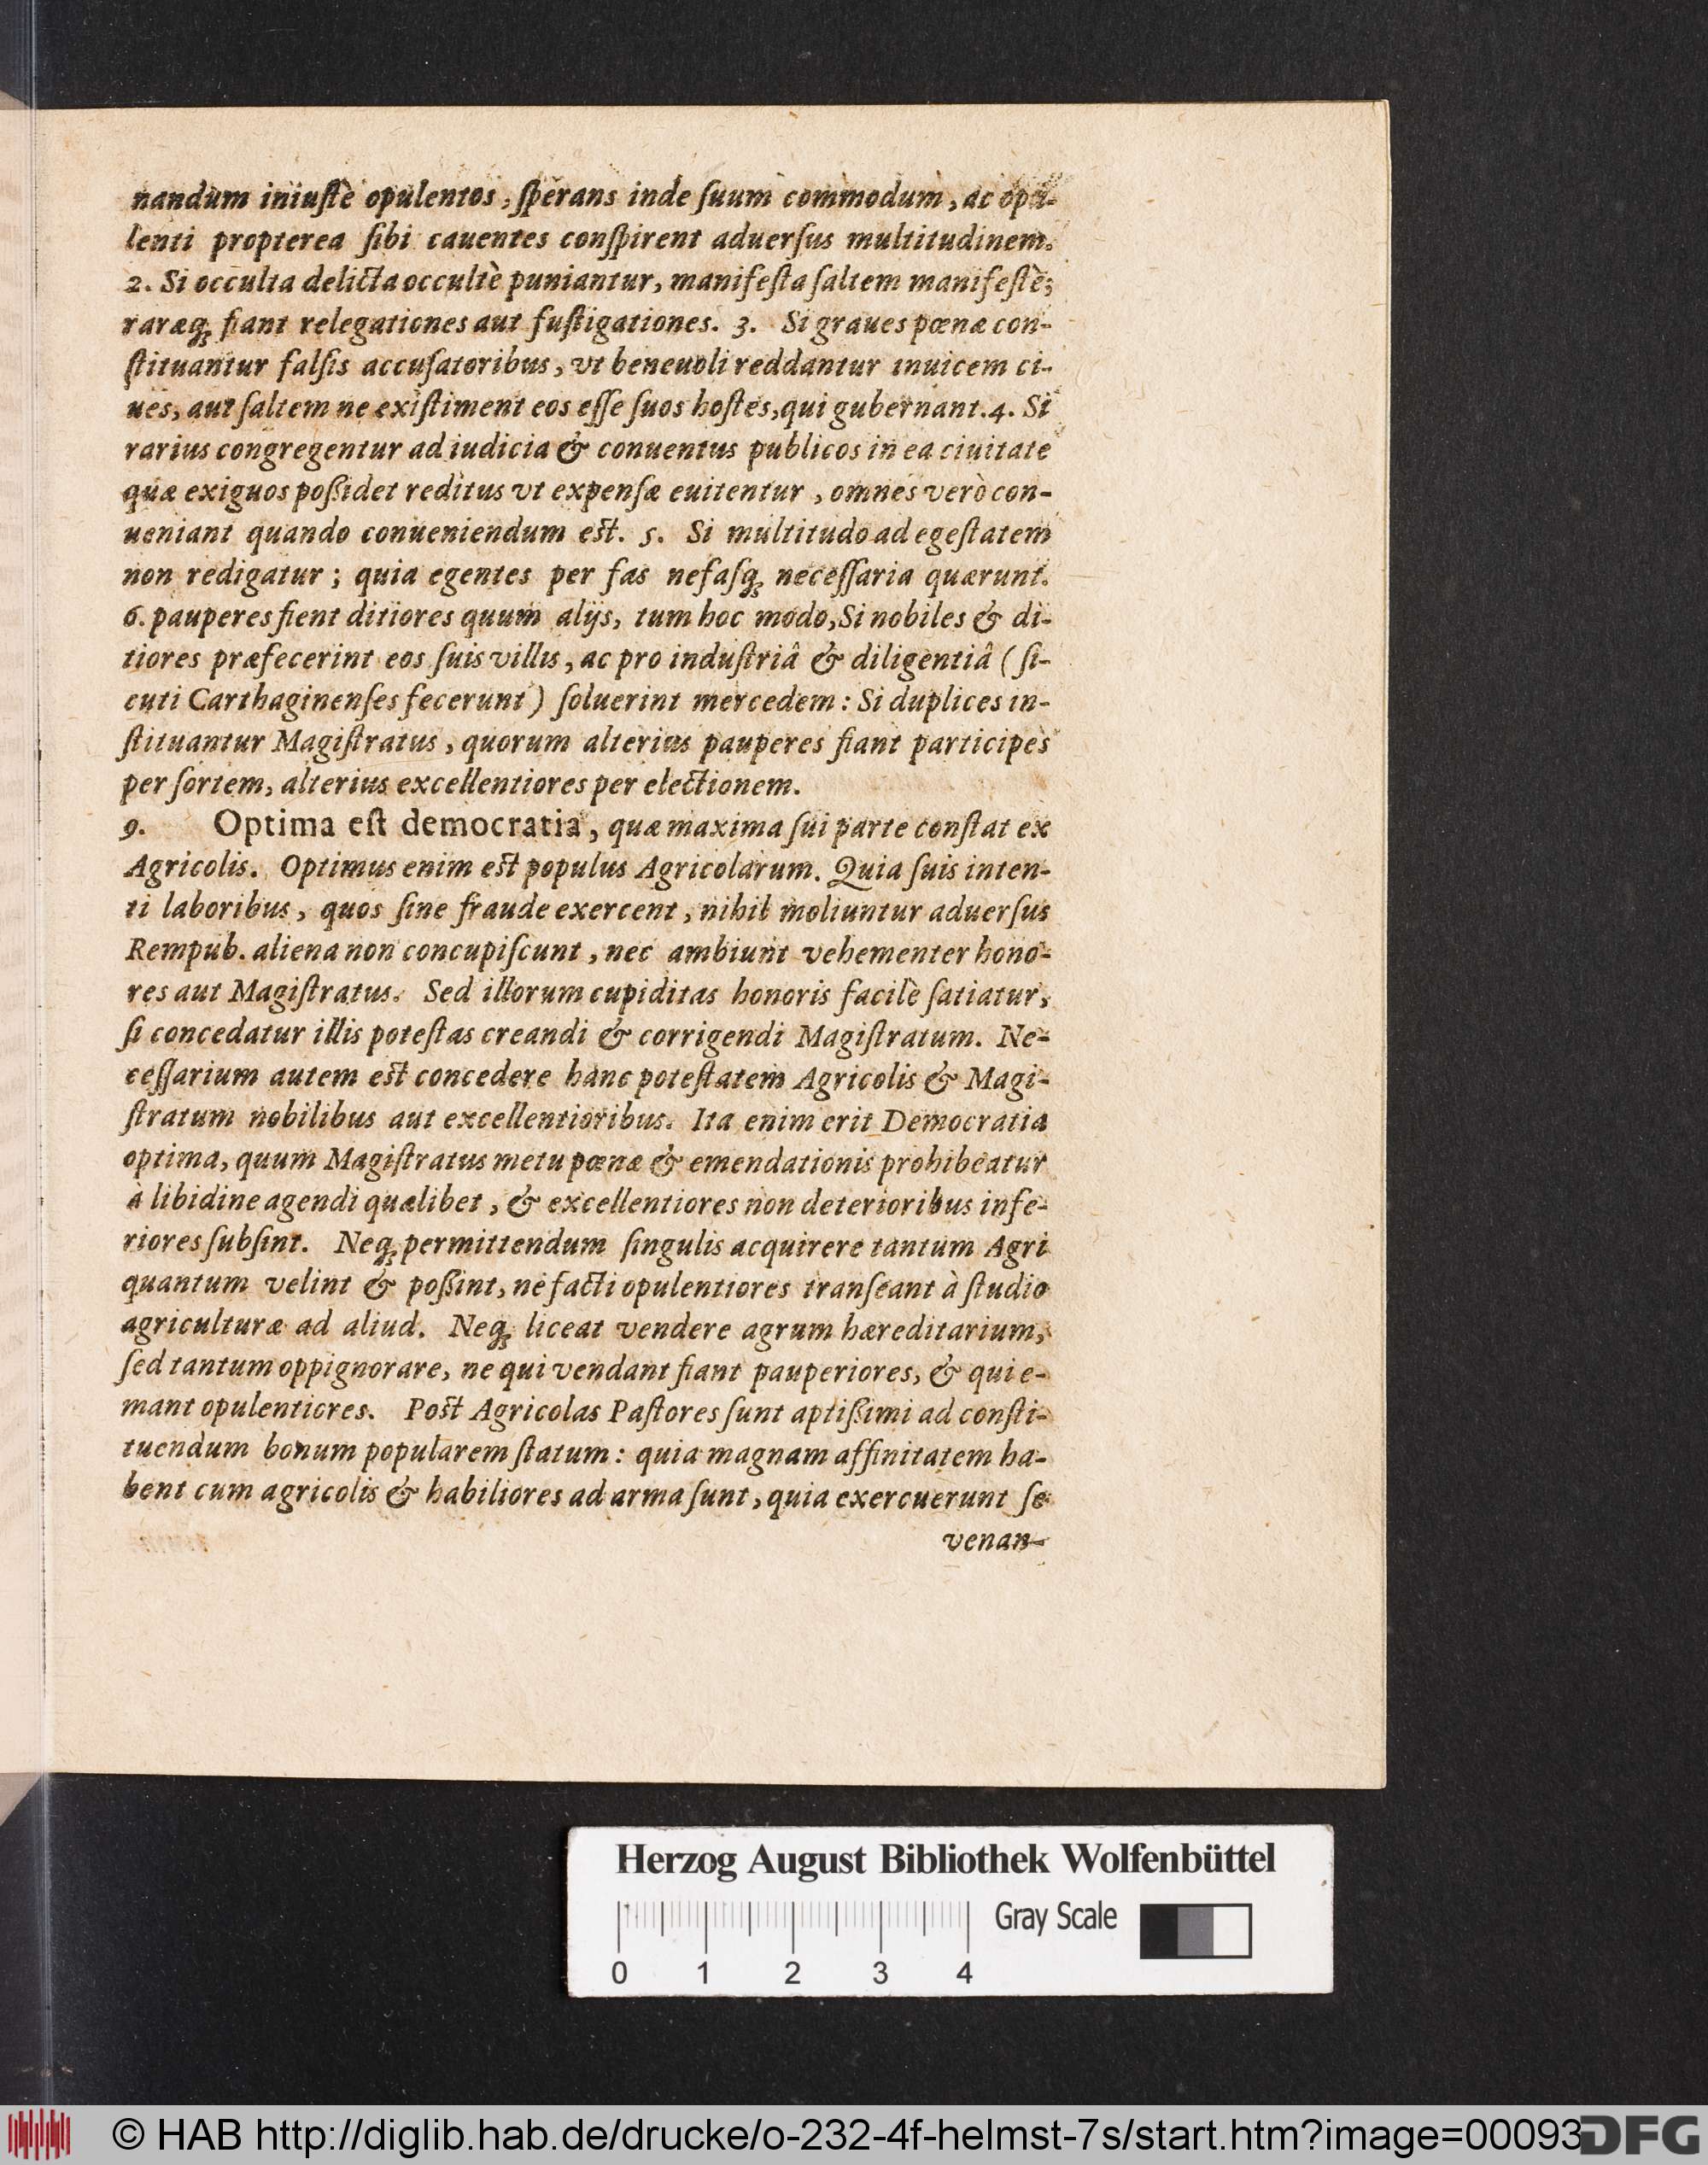 nandum iniuſtè opulentos, ſperans inde ſuum commodum, ac opu-
lenti propterea ſibi cauentes conſpirent aduerſus multitudinem.
2. Si occulta delicta occultè puniantur, manifeſta ſaltem manifeſtè;
raræq; fiant relegationes aut fuſtigationes. 3. Si graues pœnæ con-
ſtituantur falſis accuſatoribus, vt beneuoli reddantur inuicem ci-
ues, aut ſaltem ne exiſtiment eos eſſe ſuos hoſtes, qui gubernant. 4. Si
rarius congregentur ad iudicia & conuentus publicos in ea ciuitate
quæ exiguos poßidet reditus vt expenſæ euitentur, omnes verò con-
ueniant quando conueniendum est. 5. Si multitudo ad egeſtatem
non redigatur; quia egentes per fas nefaſq; neceſſaria quærunt.
6. pauperes fient ditiores quum alijs, tum hoc modo, Si nobiles & di-
tiores præfecerint eos ſuis villis, ac pro induſtriâ & diligentiâ (ſi-
cuti Carthaginenſes fecerunt) ſoluerint mercedem: Si duplices in-
ſtituantur Magiſtratus, quorum alterius pauperes fiant participes
per ſortem, alterius excellentiores per electionem.
9. Optima eſt democratia, quæ maxima ſui parte conſtat ex
Agricolis. Optimus enim est populus Agricolarum. Quia ſuis inten-
ti laboribus, quos ſine fraude exercent, nihil moliuntur aduerſus
Rempub. aliena non concupiſcunt, nec ambiunt vehementer hono-
res aut Magiſtratus. Sed illorum cupiditas honoris facilè ſatiatur,
ſi concedatur illis poteſtas creandi & corrigendi Magiſtratum. Ne-
ceſſarium autem est concedere hanc poteſtatem Agricolis & Magi-
ſtratum nobilibus aut excellentioribus. Ita enim erit Democratia
optima, quum Magiſtratus metu pœnæ & emendationis prohibeatur
à libidine agendi quælibet, & excellentiores non deterioribus infe-
riores ſubſint. Neq; permittendum ſingulis acquirere tantum Agri
quantum velint & poßint, ne facti opulentiores tranſeant à ſtudio
agriculturæ ad aliud. Neq; liceat vendere agrum hæreditarium,
ſed tantum oppignorare, ne qui vendant fiant pauperiores, & qui e-
mant opulentiores. Post Agricolas Paſtores ſunt aptißimi ad conſti-
tuendum bonum popularem ſtatum: quia magnam affinitatem ha-
bent cum agricolis & habiliores ad arma ſunt, quia exercuerunt ſe
venan-
Herzog August Bibliothek Wolfenbüttel
Gray Scale
0 1 2 3 4
© HAB http://diglib.hab.de/drucke/o-232-4f-helmst-7s/start.htm?image=00093
DFG